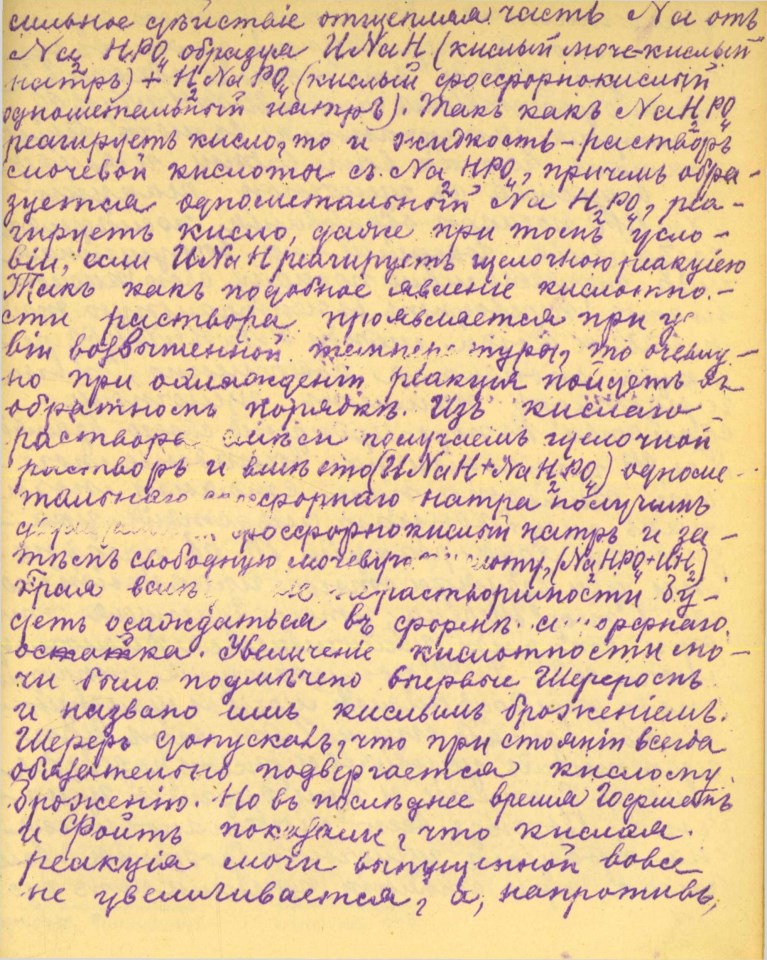 сильное дѣйствіе отщепляя часть Na отъ
Na₂HPO₄ образуя UNaH (кислый моче-кислый
натръ) + H₂NaPO₄ (кислый фосфорнокислый
однометальный натръ). Такъ какъ NaH₂PO₄
реагируетъ кисло, то и жидкость - растворъ
мочевой кислоты съ Na₂HPO₄, причемъ обра-
зуется однометальный NaH₂PO₄, реа-
гируетъ кисло, даже при томъ усло-
віи, если UNaH реагируетъ щелочною реакціею
Такъ какъ подобное явленіе кислотно-
сти раствора проявляется при
віи возвышенной температуры, то очевид-
но при охлажденіи реакція пойдетъ въ
обратномъ порядкѣ. Изъ кислаго
раствора смѣси получаемъ щелочной
растворъ и вмѣсто (UNaH+NaH₂PO₄) одноме-
тальнаго фосфорнаго натра получимъ
фосфорнокислый натръ и за-
тѣмъ свободную мочевую кислоту, (Na₂HPO₄+UH₂)
нерастворимости бу-
детъ осаждаться въ формѣ аморфнаго
остатка. Увеличеніе кислотности мо-
чи было подмѣчено впервые Шереромъ
и названо имъ кислымъ броженіемъ.
Шереръ допускалъ, что при стояніи всегда
обязательно подвергается кислому
броженію. Но въ послѣднее время Гофманъ
и Фойтъ показали, что кислая
реакція мочи выпущенной вовсе
не увеличивается, а, напротивъ,